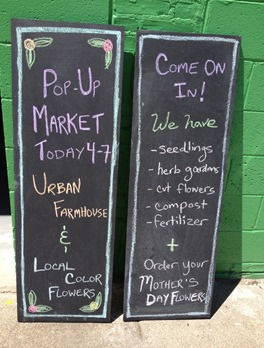 Pop-Up
Market
Today 4-7
Urban
Farmhouse
&
Local
Color
Flowers
Come On
In!
We have
- seedlings
- herb gardens
- cut flowers
- compost
- fertilizer
+
Order your
Mother's
Day Flowers